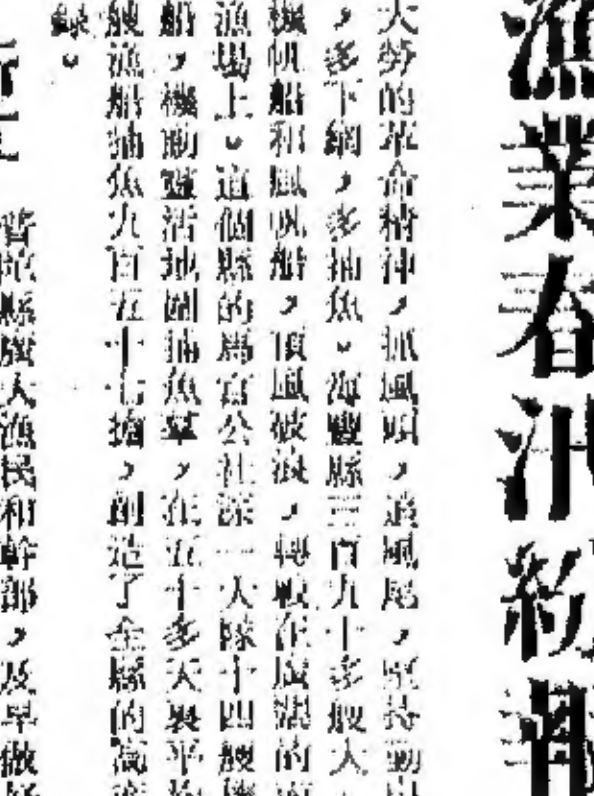 漁業春汛紛報
大勞的革命精神，抓風頭，追風尾，堅持勤出
，多下網，多捕魚。海豐縣三百九十多艘大、
機帆船和風帆船，頂風破浪，轉戰在廣濶的
漁場上。這個縣的馬宮公社深一大隊十四艘機
船，機動靈活地圍捕魚羣，在五十多天裏平均
艘漁船捕魚九百五十七擔，創造了全縣的高產
錄。
縣廣大漁民和幹部，及早做好